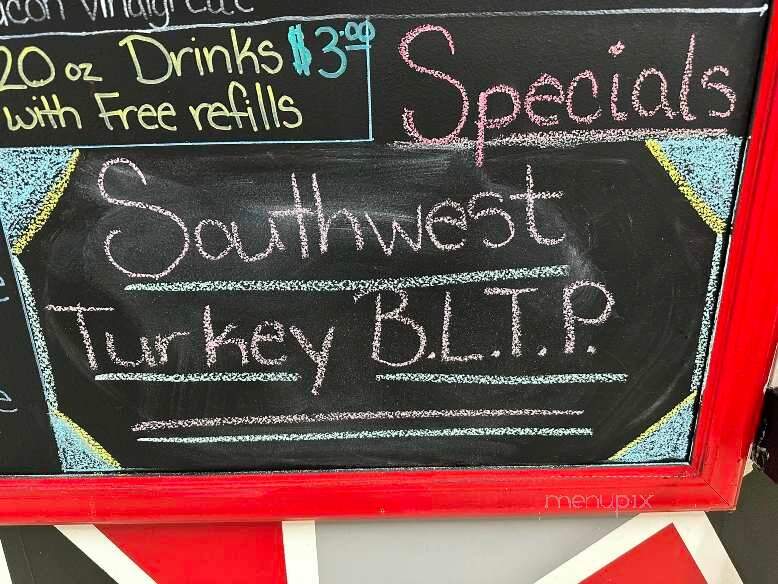 acon vinaigrette
20 oz Drinks $3.00
with Free refills
Specials
Southwest
Turkey B.L.T.P.
e
e
menupix